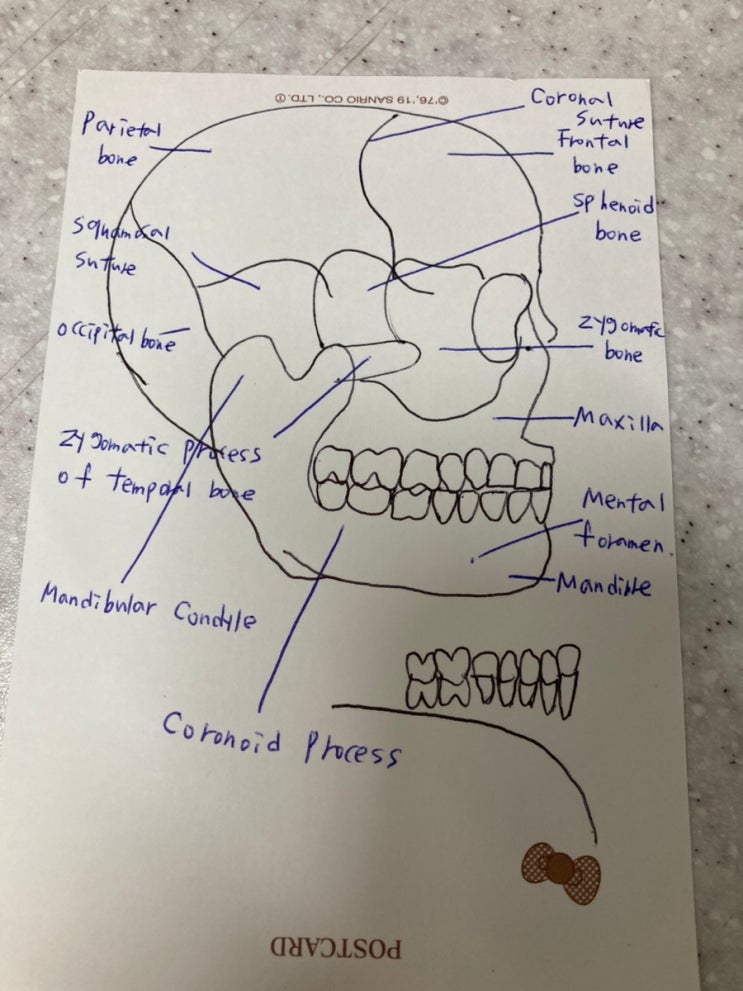 ©'76,'19 SANRIO CO., LTD. Ⓣ
Coronal
Suture
Parietal
bone
Frontal
bone
Sphenoid
bone
Squamosal
Suture
occipital bone
Zygomatic
bone
Maxilla
Zygomatic Process
of temporal bone
Mental
foramen.
Mandible
Mandibular Condyle
Coronoid Process
POSTCARD